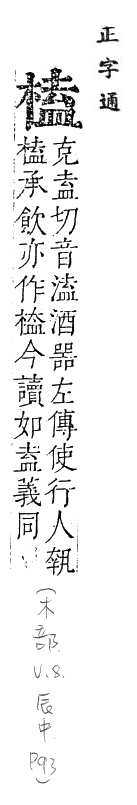 正字通
榼
克盍切音溘酒器左傳使行人執
榼承飲亦作榼今讀如盍義同
(木部
V.8.
辰中
P93)